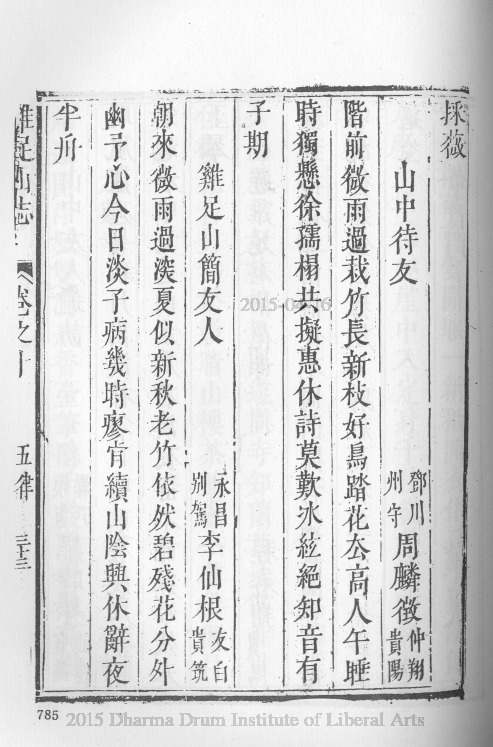 採薇
山中待友 鄧川州守 周麟徵 仲翔貴陽
階前微雨過栽竹長新枝好鳥踏花去高人午睡
時獨懸徐孺榻共擬惠休詩莫歎氷絃絕知音有
子期
雞足山簡友人 永昌別駕 李仙根 友白貴筑
朝來微雨過深夏似新秋老竹依然碧殘花分外
幽予心今日淡子病幾時廖肯續山陰興休辭夜
半舟
雞足山志 卷之十 五律 三十三
785
2015 Dharma Drum Institute of Liberal Arts